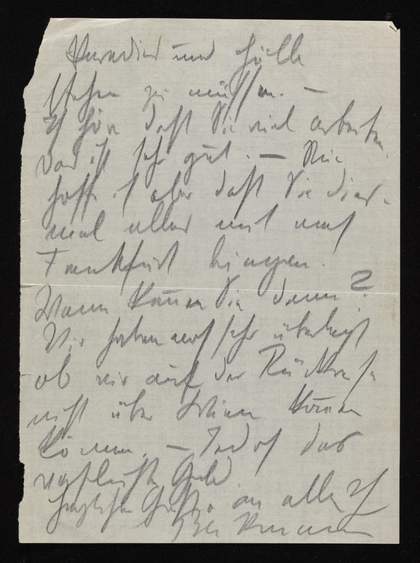 Paradies und Hölle
stehen zu müssen. –
Ich höre daß Sie viel arbeiten
das ist sehr gut. – Nun
hoffe ich aber daß Sie dies-
mal alles mit nach
Frankfurt bringen.
Wann kommen Sie denn?
Wir haben uns sehr überlegt
ob wir auf der Rückreise
nicht über Wien kommen
können. – Jedoch das
verfluchte Geld.
Herzliche Grüße an alle
Ihr